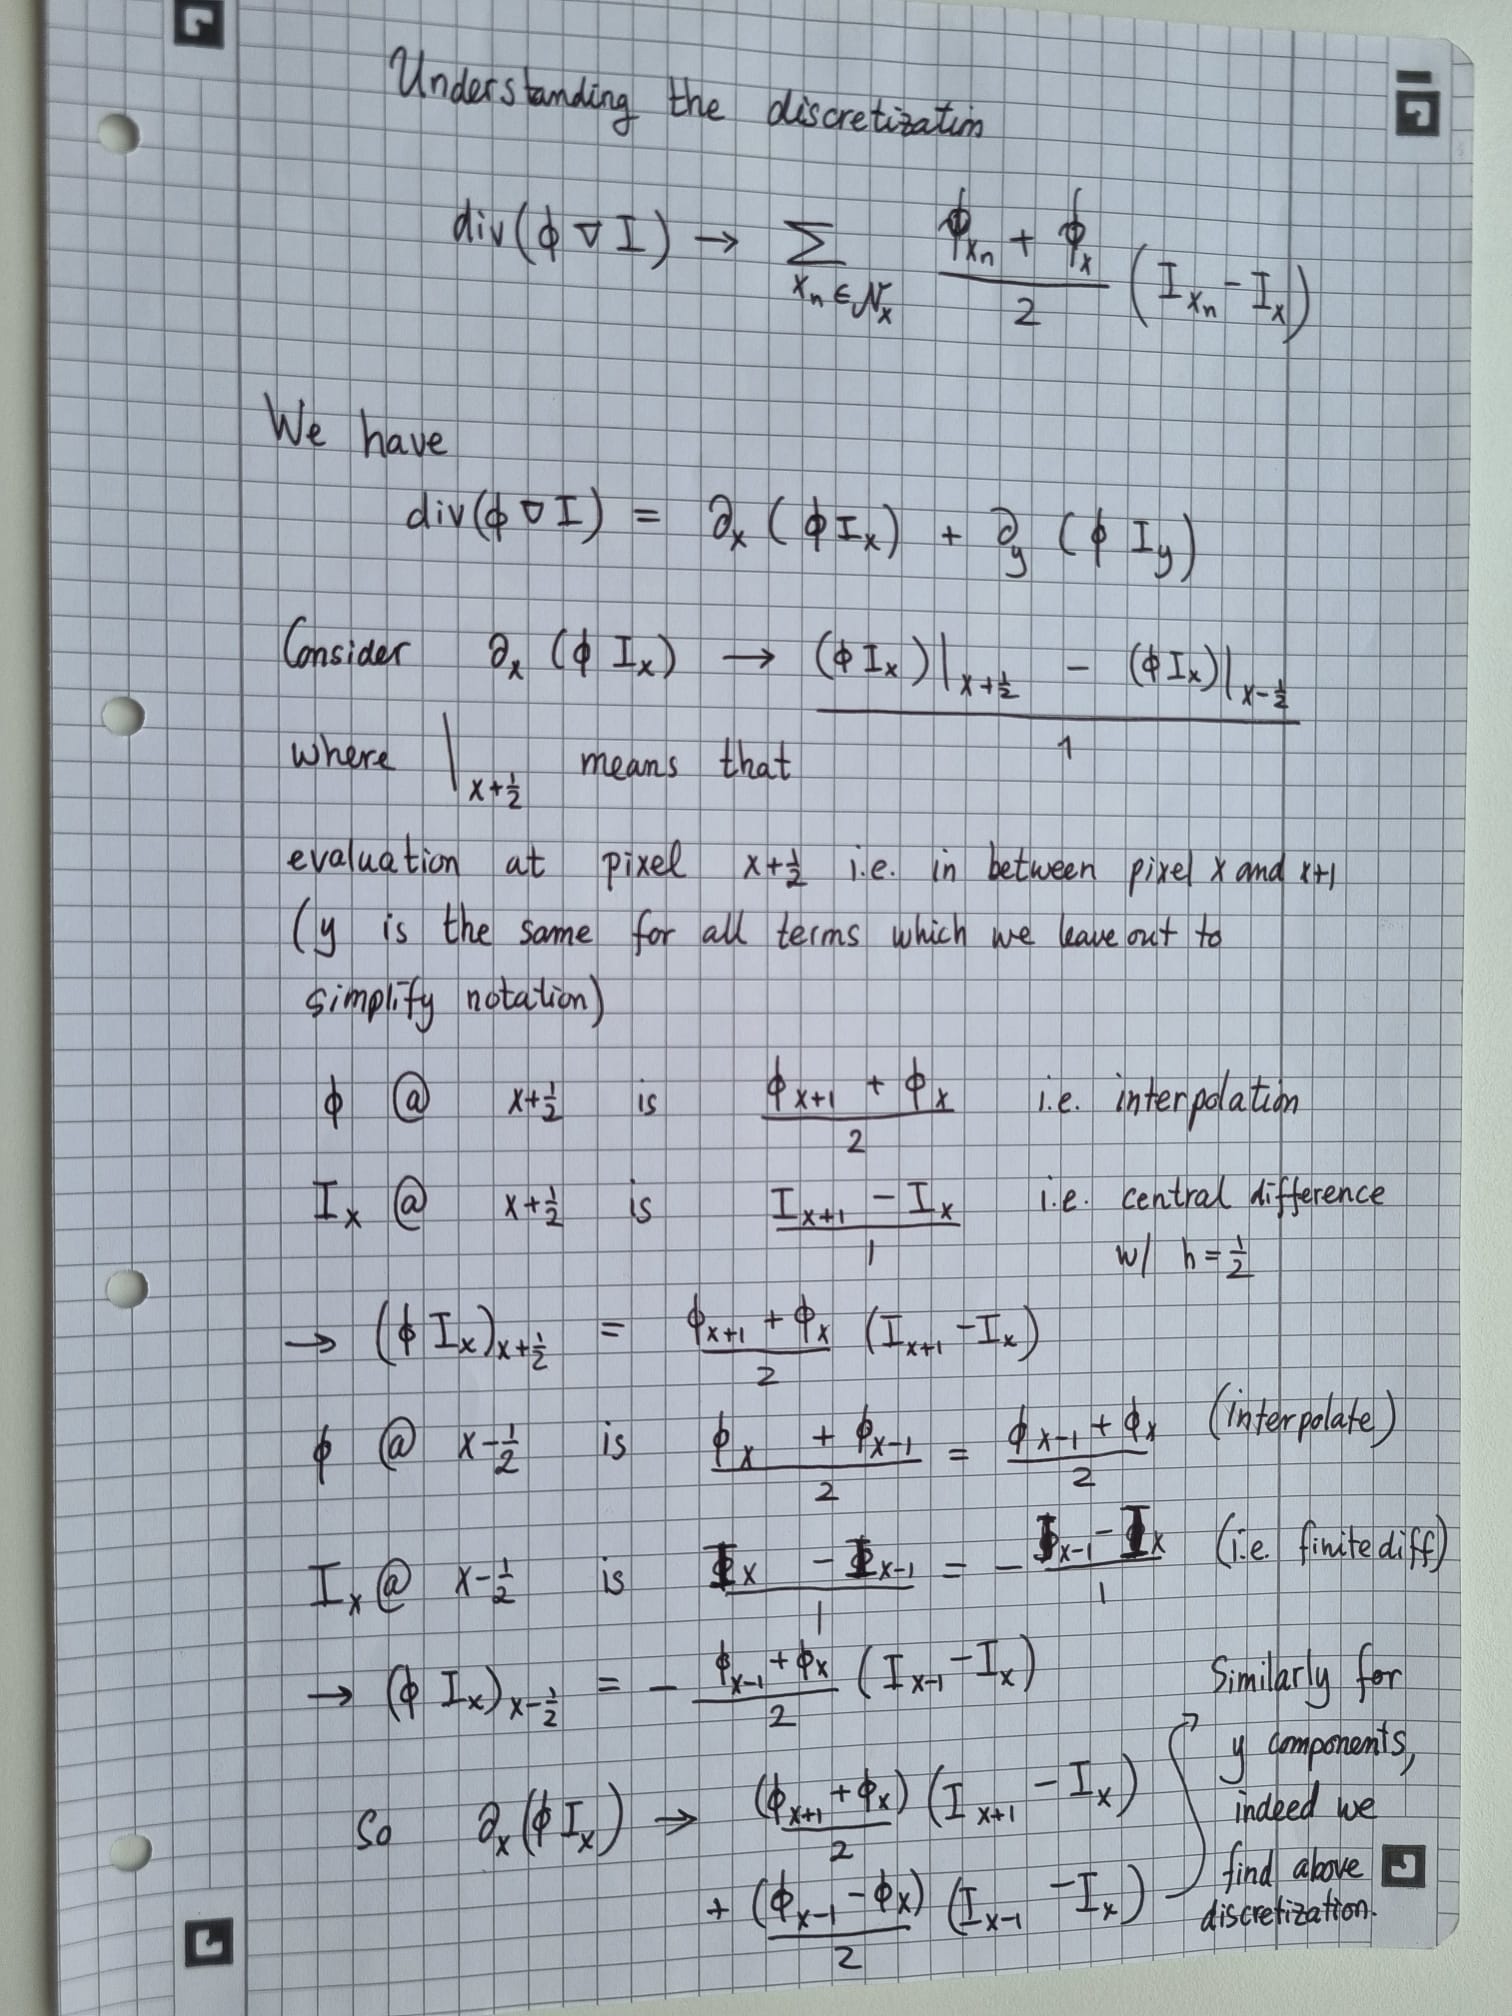 Understanding the discretization
div(ϕ ∇ I) → ∑_{x_n ∈ 𝒩_x} (ϕ_{x_n} + ϕ_x)/2 (I_{x_n} - I_x)
We have
div(ϕ ∇ I) = ∂_x (ϕ I_x) + ∂_y (ϕ I_y)
Consider ∂_x (ϕ I_x) → ((ϕ I_x)|_{x+1/2} - (ϕ I_x)|_{x-1/2})/1
where |_{x+1/2} means that
evaluation at pixel x+1/2 i.e. in between pixel x and x+1
(y is the same for all terms which we leave out to
simplify notation)
ϕ @ x+1/2 is (ϕ_{x+1} + ϕ_x)/2 i.e. interpolation
I_x @ x+1/2 is (I_{x+1} - I_x)/1 i.e. central difference
w/ h = 1/2
→ (ϕ I_x)_{x+1/2} = (ϕ_{x+1} + ϕ_x)/2 (I_{x+1} - I_x)
ϕ @ x-1/2 is (ϕ_x + ϕ_{x-1})/2 = (ϕ_{x-1} + ϕ_x)/2 (interpolate)
I_x @ x-1/2 is (I_x - I_{x-1})/1 = - (I_{x-1} - I_x)/1 (i.e. finite diff)
→ (ϕ I_x)_{x-1/2} = - (ϕ_{x-1} + ϕ_x)/2 (I_{x-1} - I_x)
So ∂_x (ϕ I_x) → (ϕ_{x+1} + ϕ_x)/2 (I_{x+1} - I_x)
+ (ϕ_{x-1} - ϕ_x)/2 (I_{x-1} - I_x)
Similarly for
y components,
indeed we
find above
discretization.